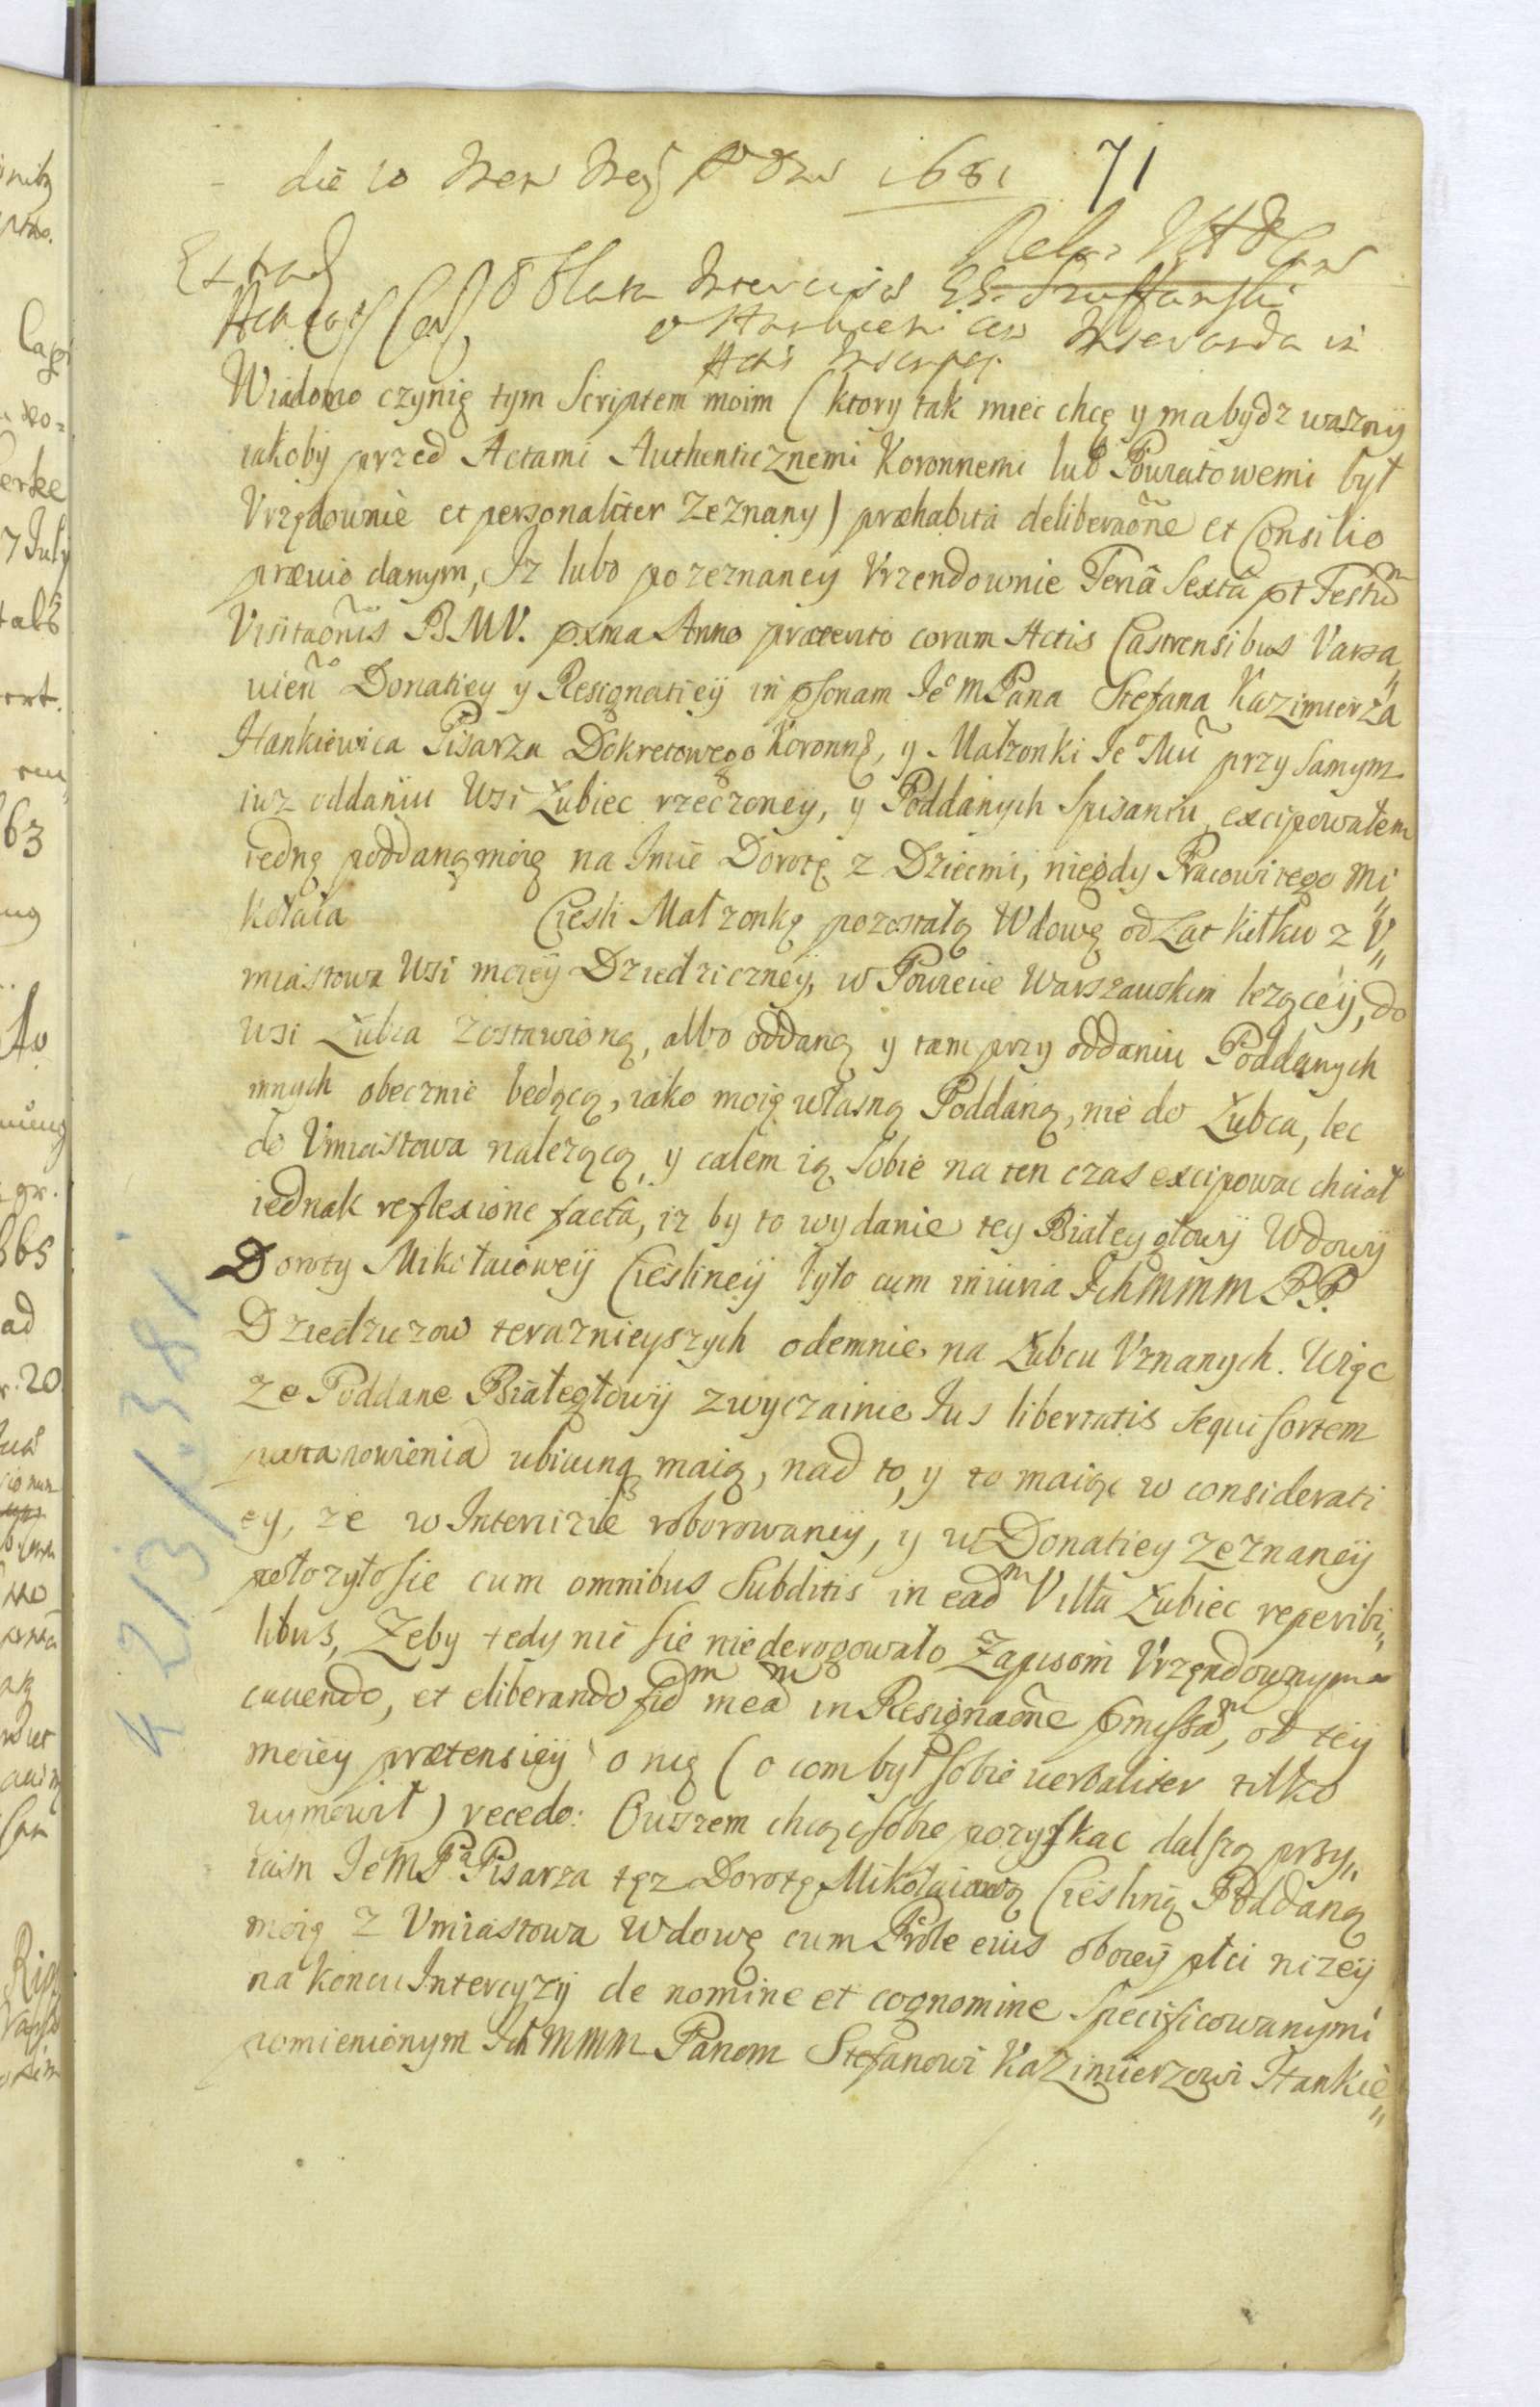 die 10 1681 71
Oblata
Wiadomo czynię tym Scriptem moim (ktory tak miec chcę y ma bydz wazny
iakoby przed Actami Authenticznemi Koronnemi lub Powiatowemi był
Vrzędownie et personaliter zeznany) præhabita deliberaoñe et Consilio
prævio danym, Iz lubo po zeznaney Vrzendownie Feria Sexta pt Festu
Visitaoñis B.M.V. pxma Anno præsenti coram Actis Castrensibus Varsa„
uieñ Donatiey y Resignatieÿ in psonam Ie° m Pana Stefana Kazimierza
Hankiewica Pisarza Dekretowego Koronng, y Małzonki Ie° Mu przy samym
iuz oddaniu Wsi Łubiec rzeczoneÿ, y Poddanych Spisaniu excipowałem
iedną poddaną moię na Imie Dorotę z Dziecmi, niegdy Pracowitego Mi„
kołaia Ciesli Małzonkę pozostałą Wdowę od Lat kilku z V„
miastowa Wsi moieÿ Dziedziczneÿ, w Powiecie Warszauskim lezącéÿ, do
Wsi Łubca zostawioną, albo oddaną y tam przy oddaniu Poddanych
innych obecznie będącą, iako moię własną Poddaną, nie do Łubca, lec
do Vmiastowa nalezącą, y całem ią sobie na ten czas excipowac chciał
iednak reflexione facta, iz by to wydanie tey Białeygłowÿ Wdowÿ
Doroty Mikołaioweÿ Cieslineÿ było cum iniuria Ichmmm PP.
Dziedzicow teraznieyszych odemnie na Łubcu Vznanych. Więc
ze Poddane Białegłowÿ zwyczainie Ius libertatis sequi sortem
postanowienia ubicunq maią, nad to, y to maiąc w considerati
ey, ze w Intercizie roborowaneÿ, y w Donatiey zeznaneÿ
położyło sie cum omnibus Subditis in ead^m Villa Łubiec reperibi„
libus, Zeby tedy nic sie niederogowało Zapisom Vrzęndownym
cauendo, et eliberando fid^m mea^m in Resignaoñe pmissa^m, od teÿ
moiey prætensieÿ o nię (o com był sobie verbaliter tilko
vymowił) recedo: Owszem chcąc sobie pozyskac dalszą przy„
iaisn Ie m P^a Pisarza tęz Dorotę Mikołaiową Cieslinę Poddaną
moię z Vmiastowa Wdowę cum Prole eius oboieÿ płci nizeÿ
na koncu Intercyzÿ de nomine et cognomine specificowanymi
pomienionym Ich mmm Panom Stefanowi Kazimierzowi Hankie„
4 213/1.381